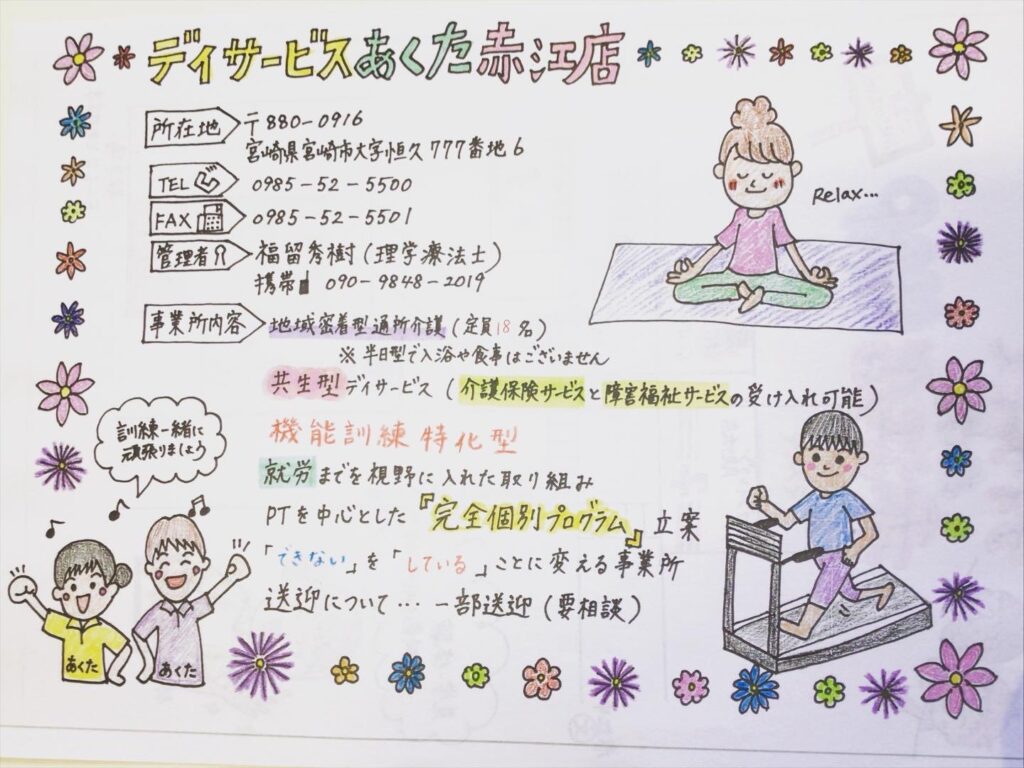 デイサービスあくた赤江店
所在地 〒880-0916
宮崎県宮崎市大字恒久777番地6
TEL 0985-52-5500
FAX 0985-52-5501
管理者 福留秀樹(理学療法士)
携帯 090-9848-2019
事業所内容 地域密着型通所介護(定員18名)
※半日型で入浴や食事はございません
共生型デイサービス(介護保険サービスと障害福祉サービスの受け入れ可能)
機能訓練特化型
就労までを視野に入れた取り組み
PTを中心とした『完全個別プログラム』立案
「できない」を「している」ことに変える事業所
送迎について…一部送迎(要相談)
Relax...
訓練一緒に
頑張りましょう
あくた
あくた